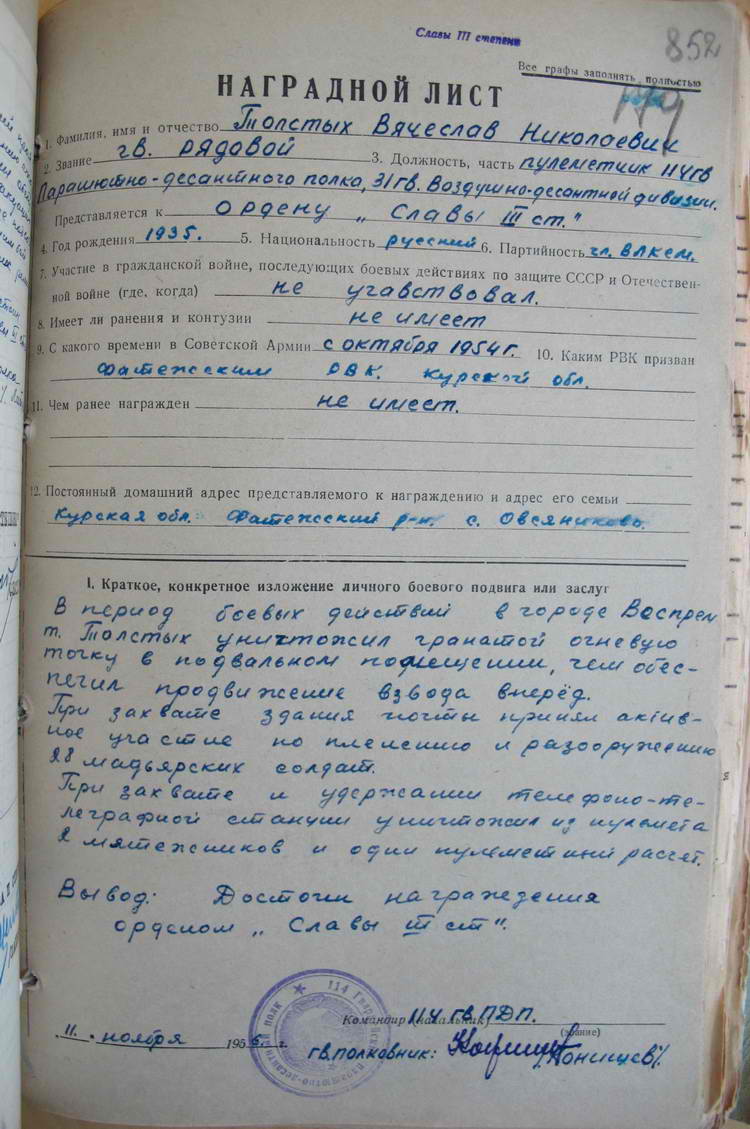 Славы III степени
852
Все графы заполнять полностью
НАГРАДНОЙ ЛИСТ
1. Фамилия, имя и отчество Толстых Вячеслав Николаевич
2. Звание гв. рядовой 3. Должность, часть пулеметчик 114 гв
Парашютно-десантного полка, 31 гв. Воздушно-десантной дивизии.
Представляется к ордену „Славы III ст."
4. Год рождения 1935. 5. Национальность русский 6. Партийность чл. ВЛКСМ.
7. Участие в гражданской войне, последующих боевых действиях по защите СССР и Отечествен-
ной войне (где, когда) не учавствовал.
8. Имеет ли ранения и контузии не имеет
9. С какого времени в Советской Армии с октября 1954 г. 10. Каким РВК призван
Фатежским РВК. Курской обл.
11. Чем ранее награжден не имеет.
12. Постоянный домашний адрес представляемого к награждению и адрес его семьи
Курская обл. Фатежсский р-н. с. Овсяниково.
I. Краткое, конкретное изложение личного боевого подвига или заслуг
В период боевых действий в городе Веспрем
т. Толстых уничтожил гранатой огневую
точку в подвальном помещении, чем обес-
печил продвижение взвода вперёд.
При захвате здания почты принял актив-
ное участие по пленению и разооружению
28 мадьярских солдат.
При захвате и удержании телефоно-те-
леграфной станции уничтожил из пулемета
2 мятежников и один пулеметный расчет.
Вывод: Достоин награждения
орденом „Славы III ст".
Командир (начальник) 114 гв. ПДП.
(звание)
„11." ноября 1956. г.
гв. полковник: